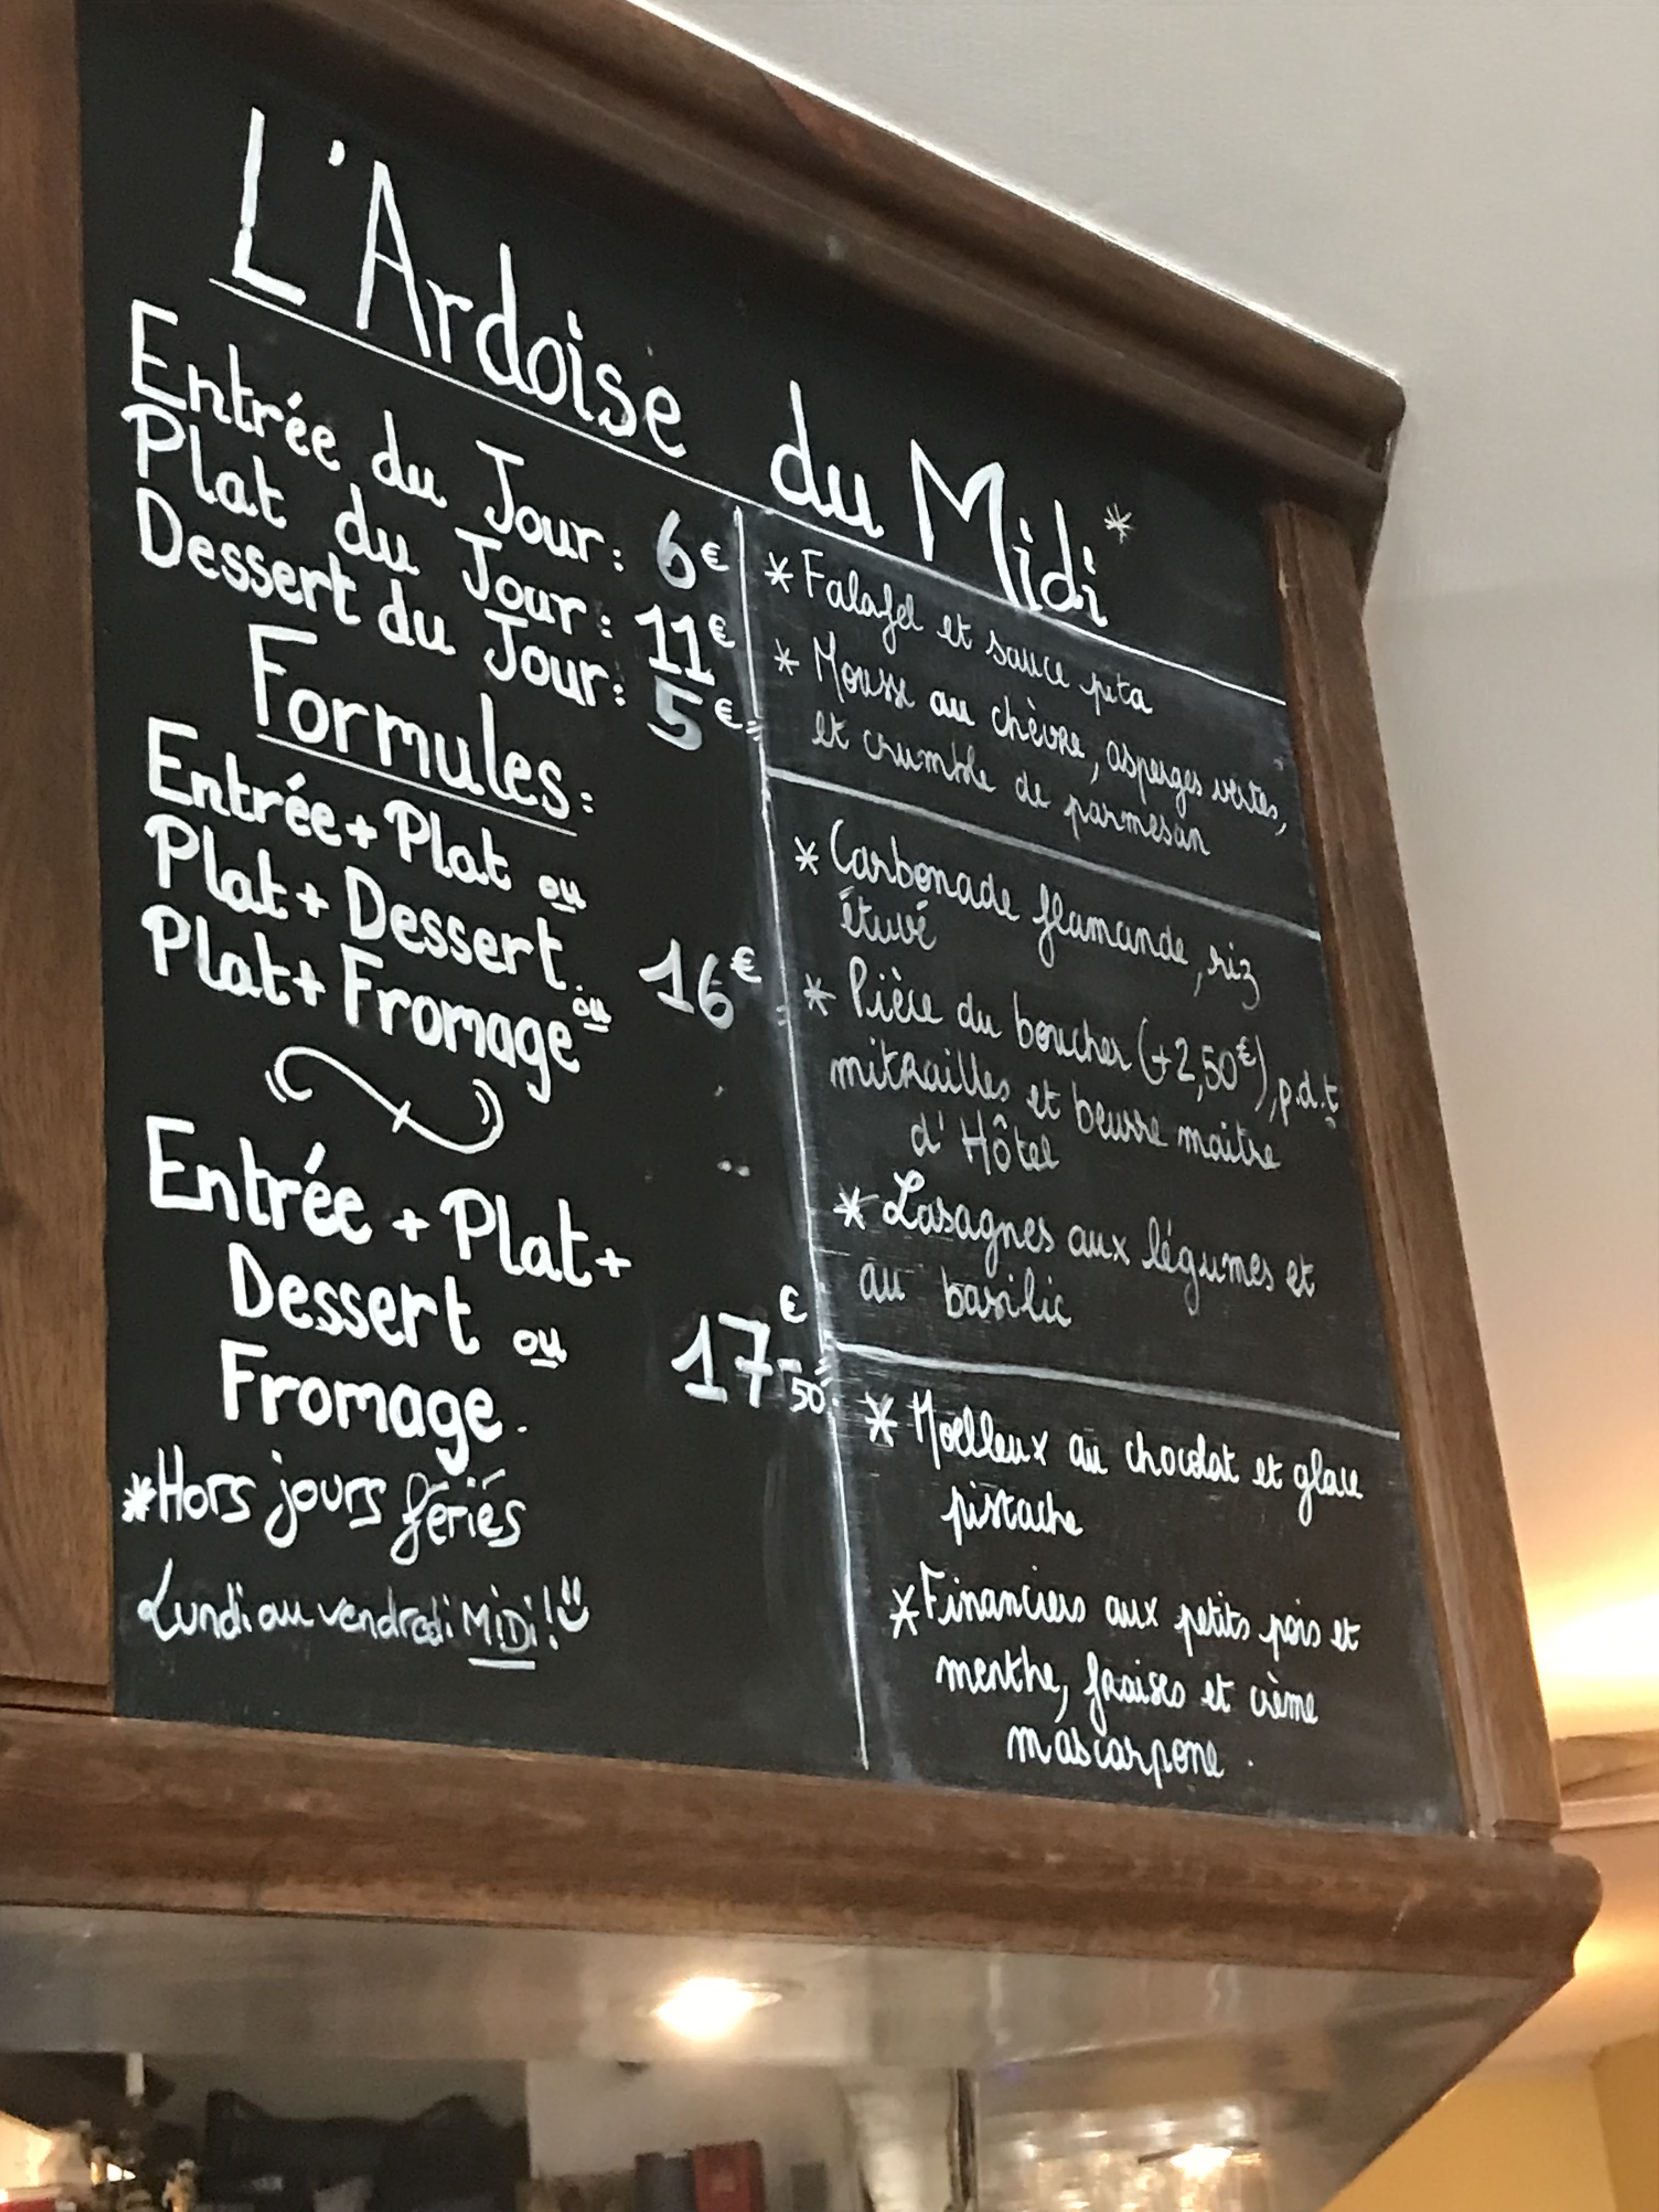 L'Ardoise du Midi*
Entrée du Jour: 6€
Plat du Jour: 11€
Dessert du Jour: 5€
Formules:
Entrée + Plat ou
Plat + Dessert ou
Plat + Fromage
16€
Entrée + Plat +
Dessert ou
Fromage.
17€50
*Hors jours fériés
Lundi au vendredi MiDi!
* Falafel et sauce pita
* Mousse au chèvre, asperges vertes,
et crumble de parmesan
* Carbonade flamande, riz
étuvé
* Pièce du boucher (+2,50€), p.d.t
mitrailles et beurre maitre
d'Hôtel
* Lasagnes aux légumes et
au basilic
* Moelleux au chocolat et glace
pistache
* Financiers aux petits pois et
menthe, fraises et crème
mascarpone.